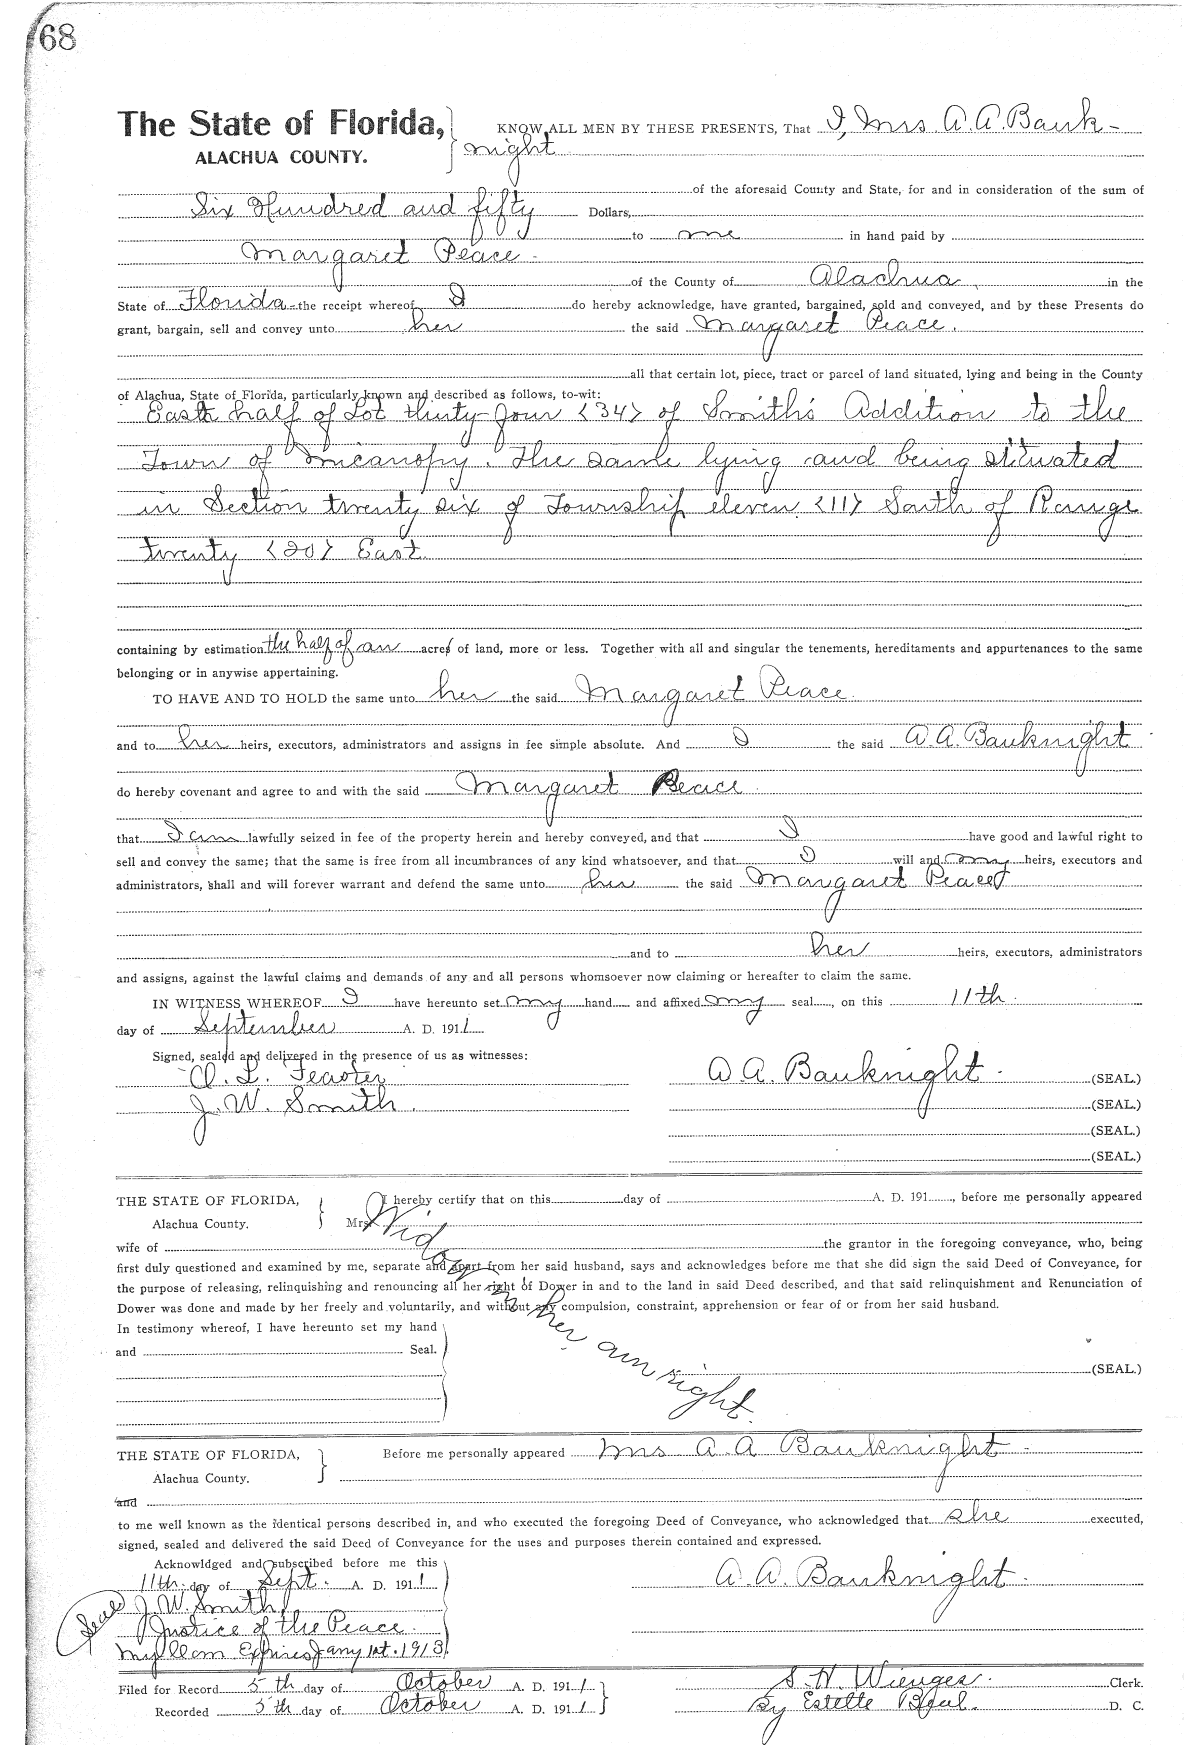 68
The State of Florida, KNOW ALL MEN BY THESE PRESENTS, That I, Mrs A. A. Bauk-
ALACHUA COUNTY. night
of the aforesaid County and State, for and in consideration of the sum of
Six Hundred and fifty Dollars,
to me in hand paid by
Margaret Peace
of the County of Alachua, in the
State of Florida the receipt whereof I do hereby acknowledge, have granted, bargained, sold and conveyed, and by these Presents do
grant, bargain, sell and convey unto her the said Margaret Peace.
all that certain lot, piece, tract or parcel of land situated, lying and being in the County
of Alachua, State of Florida, particularly known and described as follows, to-wit:
East half of Lot thirty-four <34> of Smith's Addition to the
Town of Micanopy. The same lying and being situated
in Section twenty six of Township eleven <11> South of Range
twenty <20> East.
containing by estimation the half of an acre of land, more or less. Together with all and singular the tenements, hereditaments and appurtenances to the same
belonging or in anywise appertaining.
TO HAVE AND TO HOLD the same unto her the said Margaret Peace.
and to her heirs, executors, administrators and assigns in fee simple absolute. And I the said A. A. Bauknight
do hereby covenant and agree to and with the said Margaret Peace
that I am lawfully seized in fee of the property herein and hereby conveyed, and that I have good and lawful right to
sell and convey the same; that the same is free from all incumbrances of any kind whatsoever, and that I will and my heirs, executors and
administrators, shall and will forever warrant and defend the same unto her the said Margaret Peace
and to her heirs, executors, administrators
and assigns, against the lawful claims and demands of any and all persons whomsoever now claiming or hereafter to claim the same.
IN WITNESS WHEREOF I have hereunto set my hand and affixed my seal, on this 11th
day of September A. D. 1911
Signed, sealed and delivered in the presence of us as witnesses:
O. L. Feaster A. A. Bauknight. (SEAL.)
J. W. Smith. (SEAL.)
(SEAL.)
(SEAL.)
THE STATE OF FLORIDA, I hereby certify that on this day of A. D. 191 , before me personally appeared
Alachua County. Mrs.
wife of the grantor in the foregoing conveyance, who, being
first duly questioned and examined by me, separate and apart from her said husband, says and acknowledges before me that she did sign the said Deed of Conveyance, for
the purpose of releasing, relinquishing and renouncing all her right of Dower in and to the land in said Deed described, and that said relinquishment and Renunciation of
Dower was done and made by her freely and voluntarily, and without any compulsion, constraint, apprehension or fear of or from her said husband.
Widow in her own right.
In testimony whereof, I have hereunto set my hand
and Seal.
(SEAL.)
THE STATE OF FLORIDA, Before me personally appeared Mrs A. A Bauknight
Alachua County.
and
to me well known as the identical persons described in, and who executed the foregoing Deed of Conveyance, who acknowledged that she executed,
signed, sealed and delivered the said Deed of Conveyance for the uses and purposes therein contained and expressed.
Acknowldged and subscribed before me this
11th day of Sept. A. D. 1911 A. A. Bauknight.
(Seal) J. W. Smith,
Justice of the Peace.
My Com Expires Jany 1st. 1913
Filed for Record 5th day of October A. D. 1911 S. H. Wienges. Clerk.
Recorded 5th day of October A. D. 1911 By Estelle D. C.